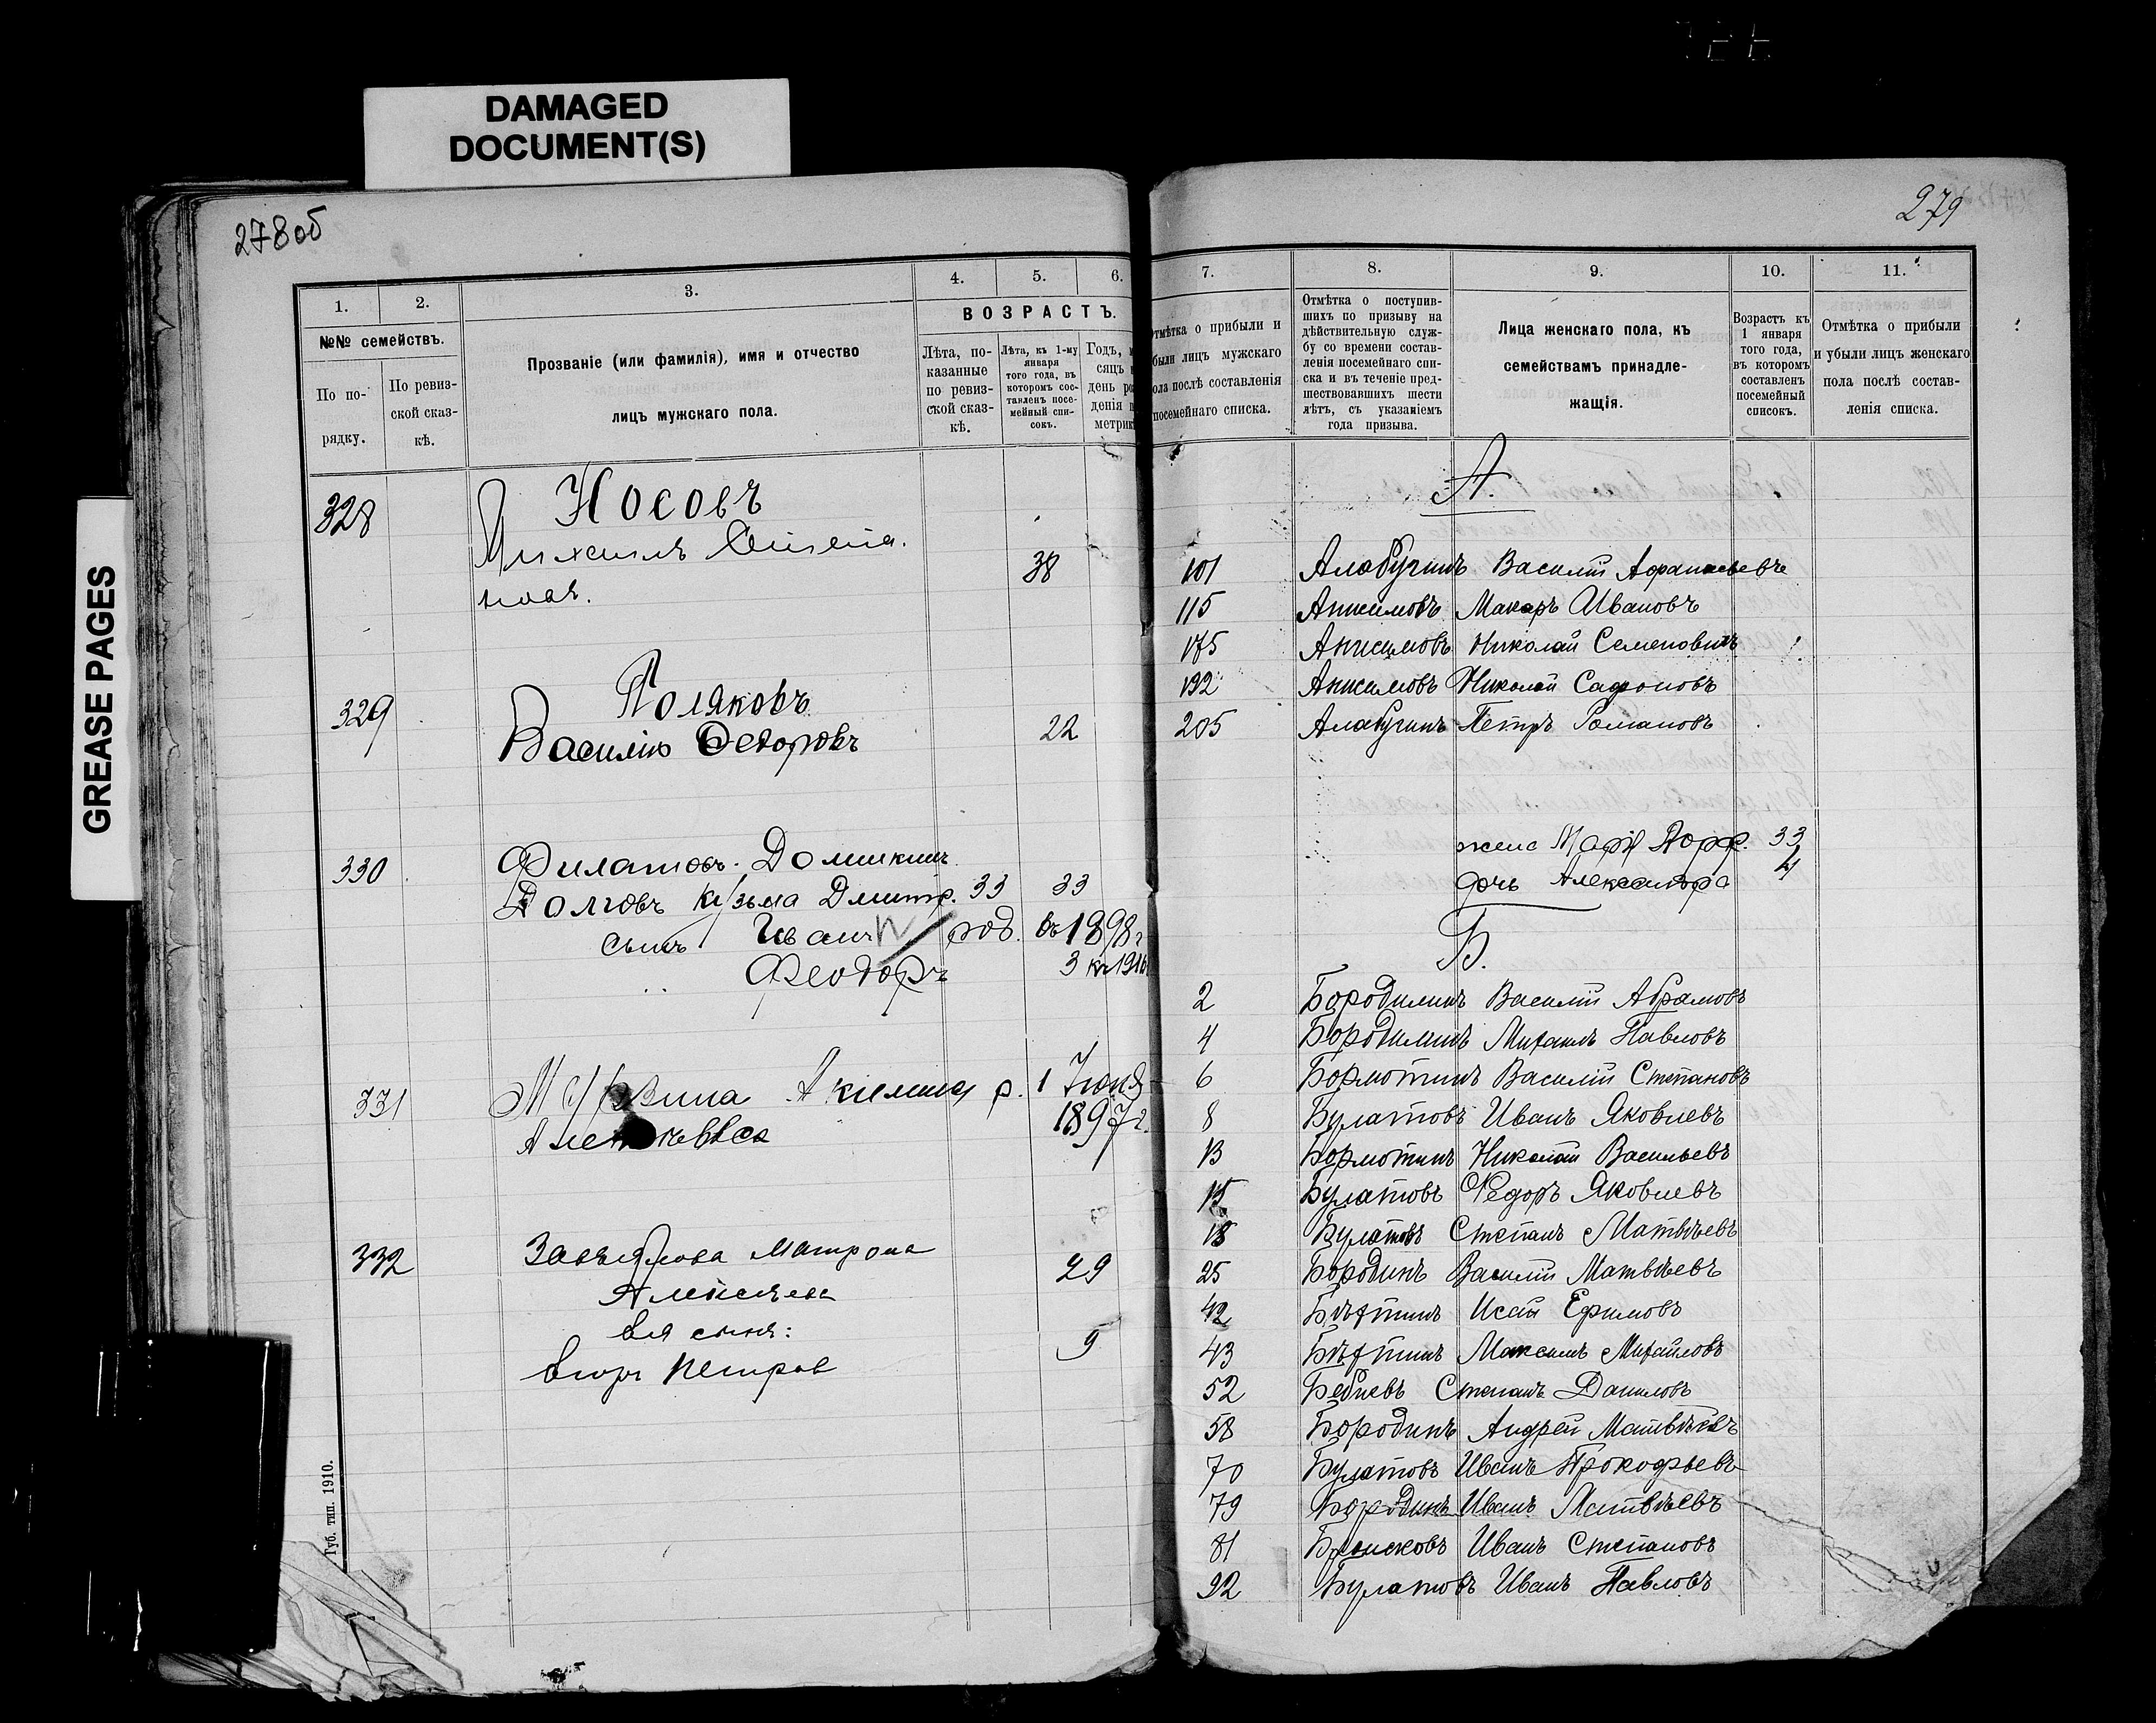 DAMAGED
DOCUMENT(S)
GREASE PAGES
278об
1.
2.
3.
4.
5.
6.
№№ семействъ.
По по-
рядку.
По ревиз-
ской сказ-
кѣ.
Прозваніе (или фамилія), имя и отчество
лицъ мужскаго пола.
ВОЗРАСТЪ.
Лѣта, по-
казанные
по ревиз-
ской сказ-
кѣ.
Лѣта, къ 1-му
января
того года, въ
которомъ сос-
тавленъ посе-
мейный спи-
сокъ.
Годъ,
сяцъ
день
денія
метрик
328
Носовъ
Михаилъ
новъ.
38
329
Поляковъ
Василій Федоровъ
22
330
Филатовъ-Домикинъ
Долговъ Кузьма Дмитр. 33 33
сынъ Иванъ род. въ 1898г
Феодоръ 3 къ 1916
331
Акилина р. 1 Іюня
1897г.
332
Завьялова Матрона
29
Алексѣева
ея сынъ:
Егоръ Петров
9
Губ. тип. 1910.
279
7.
8.
9.
10.
11.
отмѣтка о прибыли и
были лицъ мужскаго
ола послѣ составленія
посемейнаго списка.
Отмѣтка о поступив-
шихъ по призыву на
дѣйствительную служ-
бу со времени состав-
ленія посемейнаго спи-
ска и въ теченіе пред-
шествовавшихъ шести
лѣтъ, съ указаніемъ
года призыва.
Лица женскаго пола, къ
семействамъ принадле-
жащія.
Возрастъ къ
1 января
того года,
въ которомъ
составленъ
посемейный
списокъ.
Отмѣтка о прибыли
и убыли лицъ женскаго
пола послѣ состав-
ленія списка.
А.
101 Алабугинъ Василій Афанасьевъ
115 Анисимовъ Макаръ Ивановъ
175 Анисимовъ Николай Семеновичъ
192 Анисимовъ Николай Сафоновъ
205 Алабугинъ Петръ Романовъ
жена 33
дочь Александра 4
Б.
2 Бородилинъ Василій Абрамовъ
4 Бородилинъ Михаилъ Павловъ
6 Бормотинъ Василій Степановъ
8 Булатовъ Иванъ Яковлевъ
13 Бормотинъ Николай Васильевъ
15 Булатовъ Федоръ Яковлевъ
18 Булатовъ Степанъ Матвѣевъ
25 Бородинъ Василій Матвѣевъ
42 Бѣхтинъ Исай Ефимовъ
43 Бѣхтинъ Максимъ Михайловъ
52 Степанъ Даниловъ
58 Бородинъ Андрей Матвѣевъ
70 Булатовъ Иванъ Прокофьевъ
79 Бородинъ Иванъ Матвѣевъ
81 Иванъ Степановъ
92 Булатовъ Иванъ Павловъ